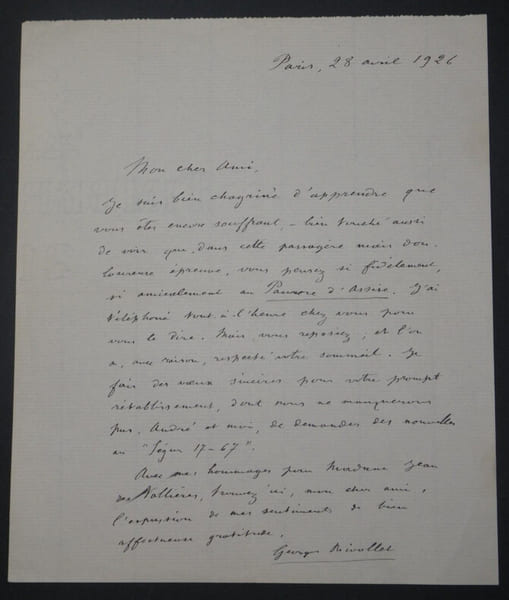 Paris, 28 avril 1926
Mon cher Ami,
Je suis bien chagriné d'apprendre que
vous êtes encore souffrant, – bien touché aussi
de voir que, dans cette passagère mais dou-
loureuse épreuve, vous pensez si fidèlement,
si amicalement au Pauvre d'Assise. J'ai
téléphoné tout à l'heure chez vous pour
vous le dire. Mais vous reposiez, et l'on
a, avec raison, respecté votre sommeil. Je
fais des vœux sincères pour votre prompt
rétablissement, dont nous ne manquerons
pas, André et moi, de demander des nouvelles
au "Ségur 17-67".
Avec mes hommages pour Madame Jean
des Vallières, trouvez ici, mon cher ami,
l'expression de mes sentiments de bien
affectueuse gratitude.
Georges Rivollet